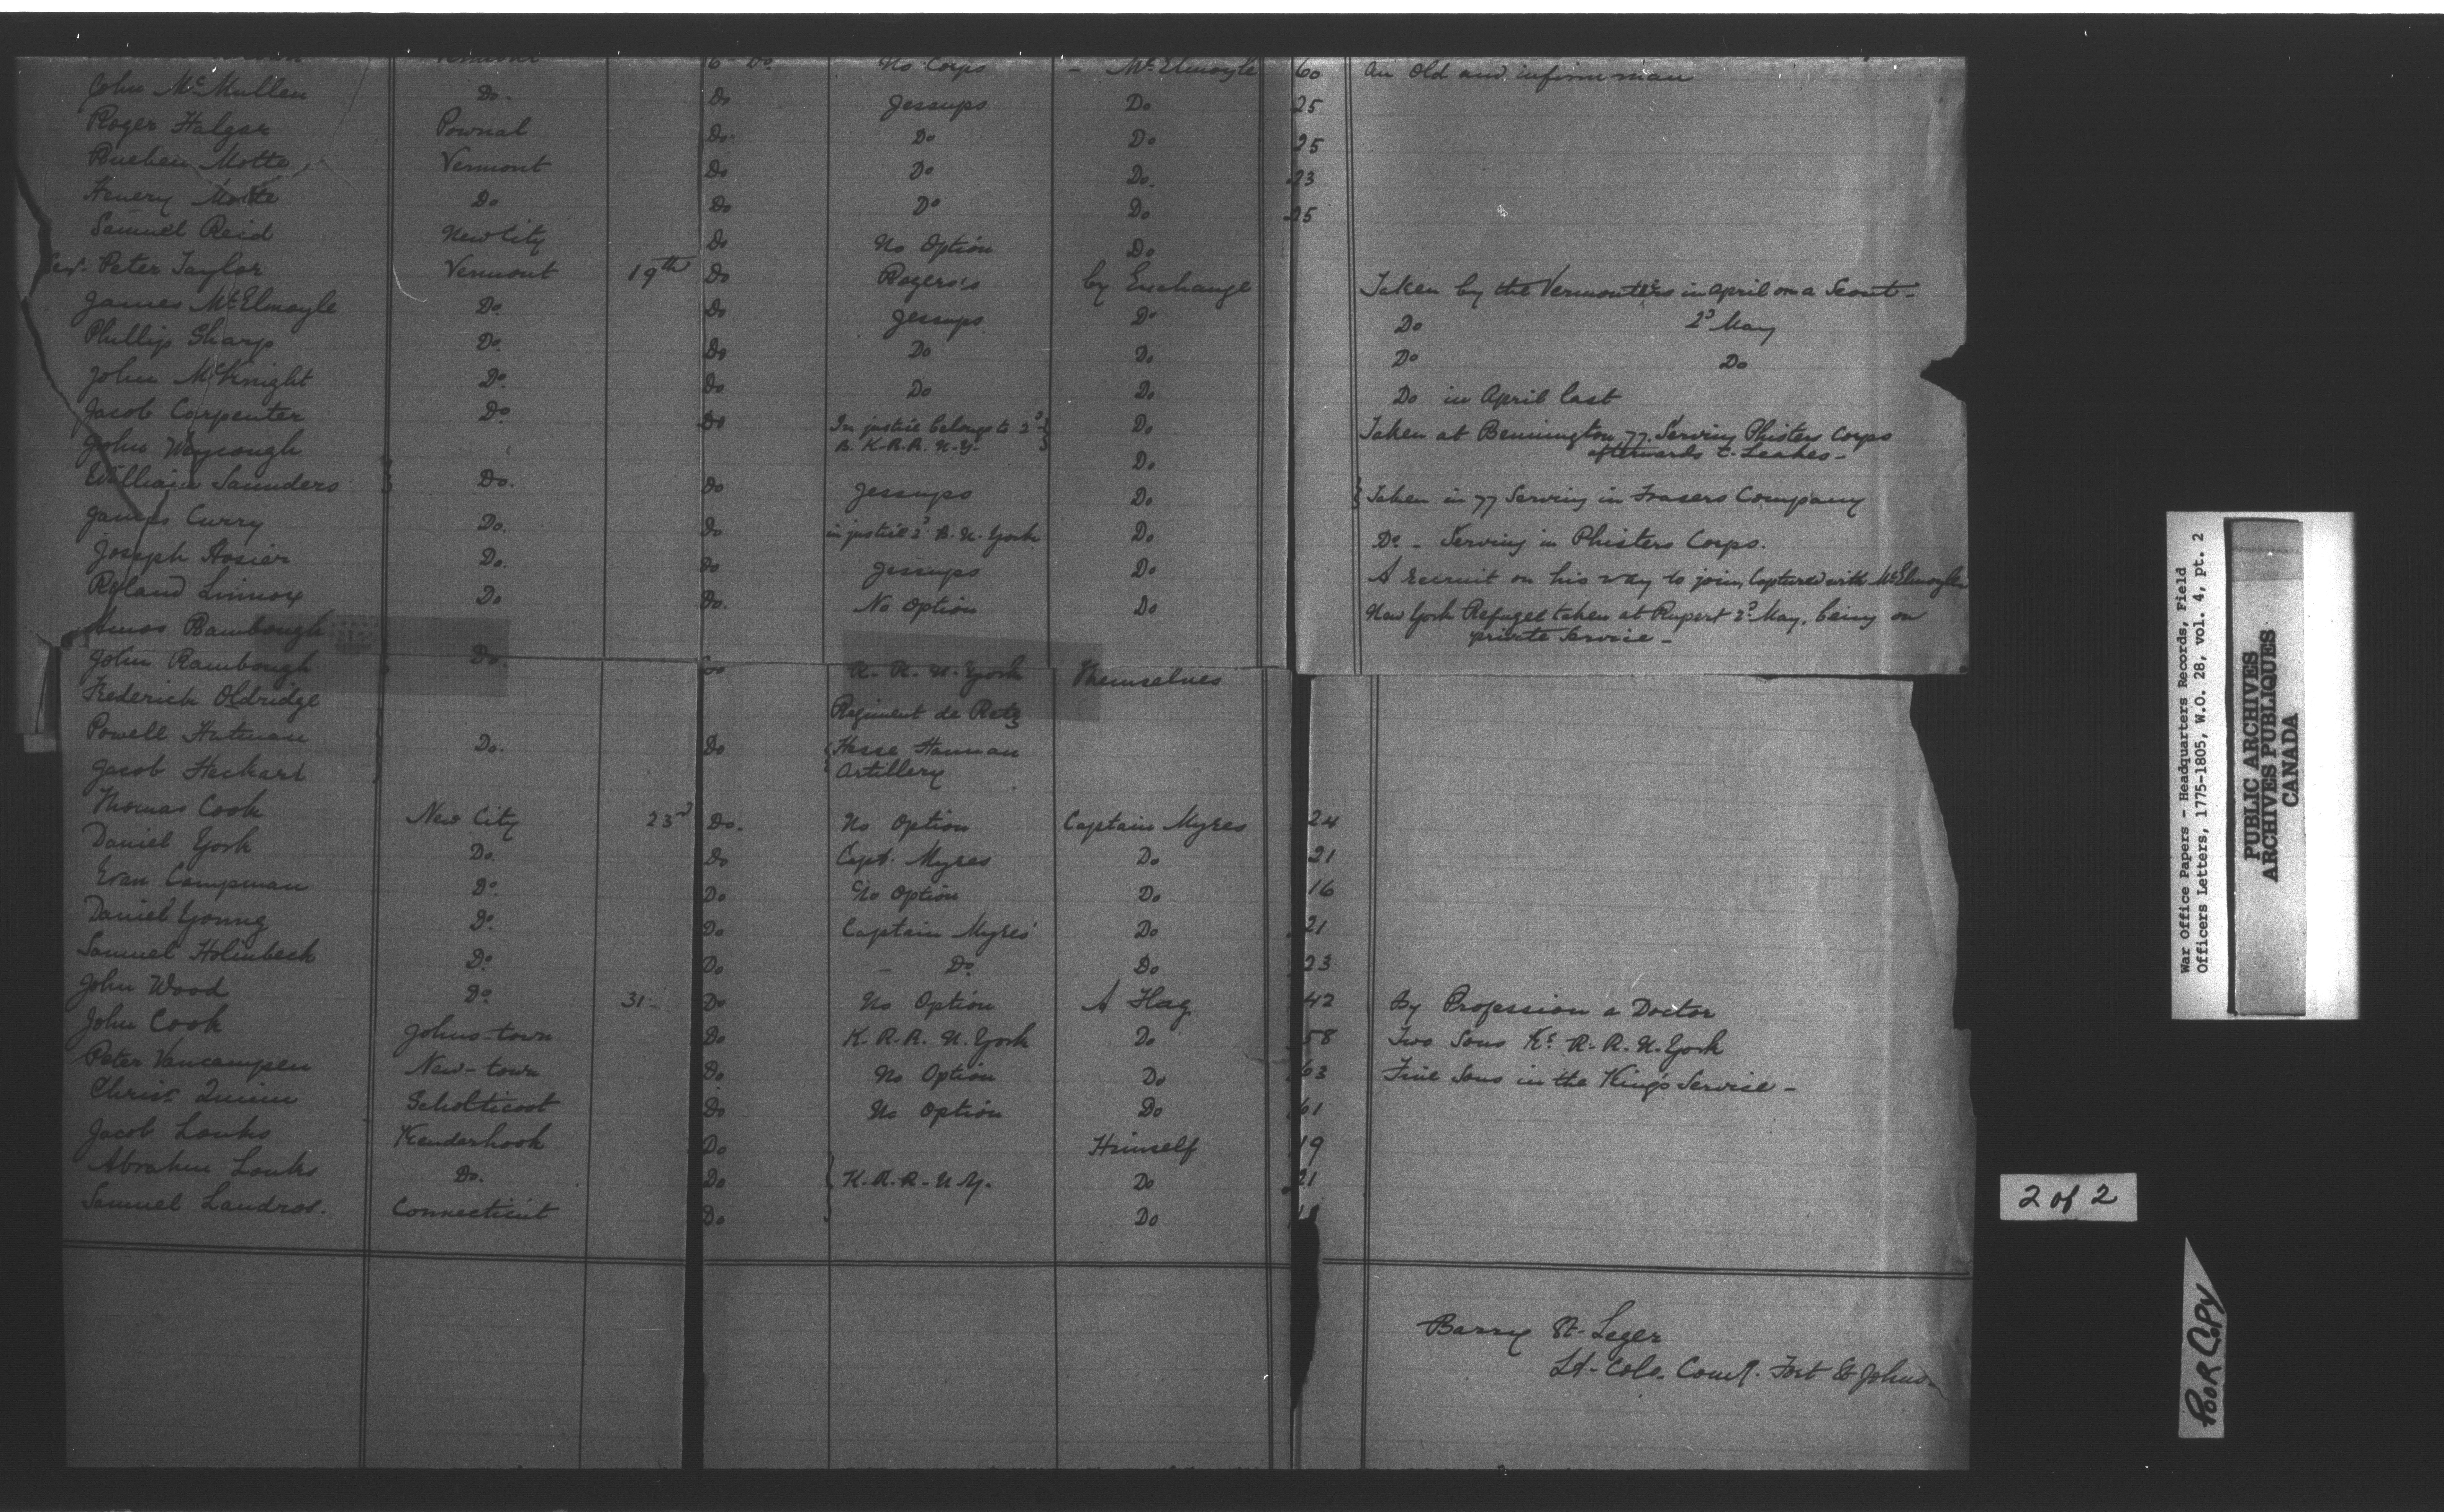 Vermont 6 Do No Corps - McElmoyle 60 An Old and infirm man
John McMullen Do. Do Jessups Do 25
Roger Halgar Pownal Do Do Do 25
Rueben Motte Vermont Do Do Do. 23
Henery Motte Do Do Do Do 25
Samuel Reid New City Do No Option Do
Peter Taylor Vermont 19th Do Rogers's by Exchange Taken by the Vermonters in april on a Scout -
James McElmoyle Do. Do Jessups Do Do 2d May
Phillip Sharp Do. Do Do Do. Do Do
John McKnight Do. Do Do Do Do in April last
Jacob Carpenter Do. Do In justice belongs to 2d Do Taken at Bennington 77. Serving Phisters Corps
John B. K.R.R. N.Y. Do afterwards Leakes -
William Saunders Do. Do Jessups Do Taken in 77 Serving in Frasers Company
James Curry Do. Do in justice 2d B. N. York Do Do - Serving in Phisters Corps.
Joseph Hosier Do. Do Jessups Do A recruit on his way to join, Captured with McElmoyle
Roland Linnox Do Do. No Option Do New York Refugee taken at Rupert 2d May, being on
private Service -
Amos Bambough
John Rambough Do. Do K. R. N. York Themselves
Frederick Oldridge Regiment de Retz
Powell Hutman Do. Do Hesse Hannau
Jacob Heckart Artillery
Thomas Cook New City 23d Do. No Option Captain Myres 24
Daniel York Do. Do Capt. Myres Do 21
Evan Campman Do. Do No Option Do 16
Daniel Young Do. Do Captain Myres Do 21
Samuel Holinbeck Do. Do - Do. Do 23
John Wood Do. 31 - Do No Option A Flag 42 By Profession a Doctor
John Cook Johns-town Do K.R.R. N. York Do 58 Two Sons Ks R.R.N. York
Peter Vancampen New-town Do. No Option Do 63 Five Sons in the King's Service -
Christ Quinn Scholticoot Do No Option Do 61
Jacob Louks Kenderhook Do Himself 19
Abrahm Louks Do. Do K.R.R-N.Y. Do 21
Samuel Landras. Connecticut Do Do 18
Barry St. Leger
Lt-Colo. Fort St Johns
War Office Papers - Headquarters Records, Field
Officers Letters, 1775-1805, W.O. 28, vol. 4, pt. 2
PUBLIC ARCHIVES
ARCHIVES PUBLIQUES
CANADA
2 of 2
POOR COPY